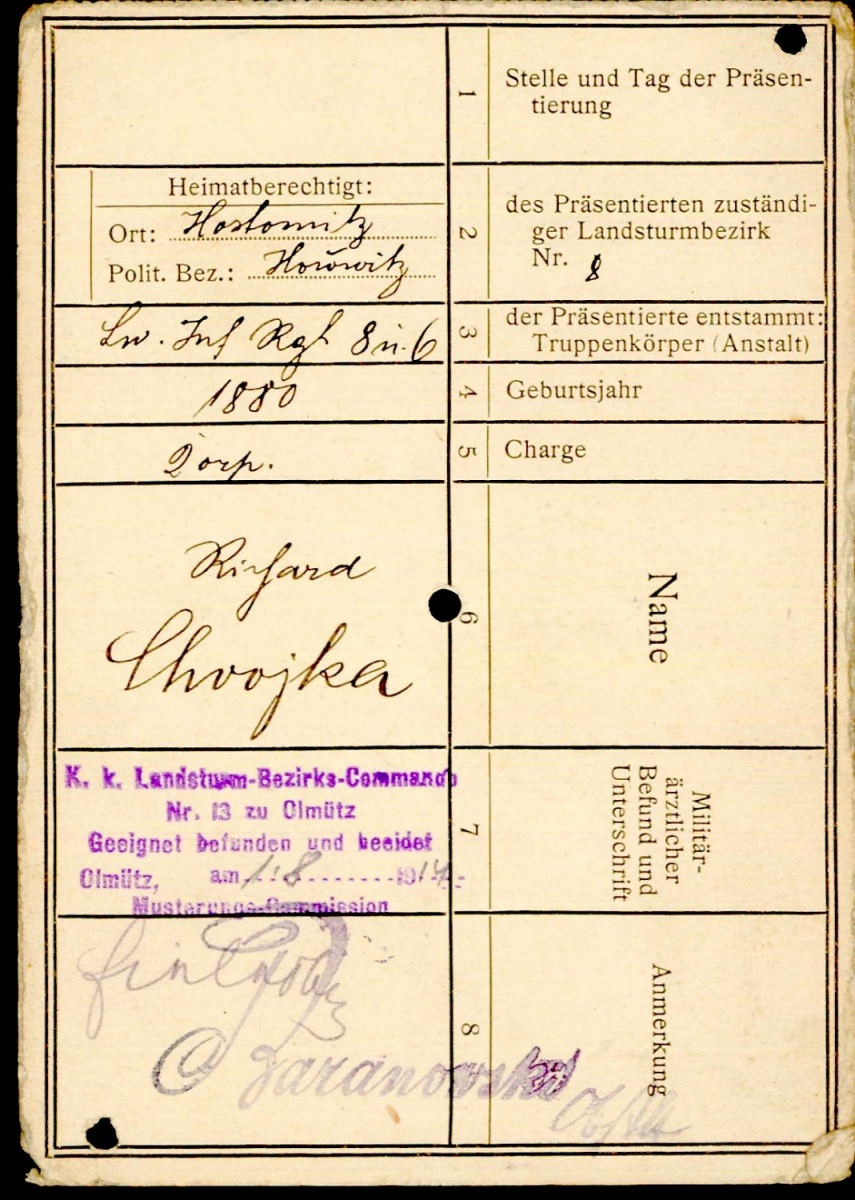 1
Stelle und Tag der Präsen-
tierung
Heimatberechtigt:
Ort: Hostomitz
Polit. Bez.: Horowitz
2
des Präsentierten zuständi-
ger Landsturmbezirk
Nr. 8
Lw. Inf Rgt 8 u. 6
3
der Präsentierte entstammt:
Truppenkörper (Anstalt)
1880
4
Geburtsjahr
5
Charge
Richard
Chvojka
6
Name
K. k. Landsturm-Bezirks-Command
Nr. 13 zu Olmütz
Geeignet befunden und beeidet
Olmütz, am 1.8 1914
Musterungs-Commission
7
Militär-
ärztlicher
Befund und
Unterschrift
Baranowski
8
Anmerkung